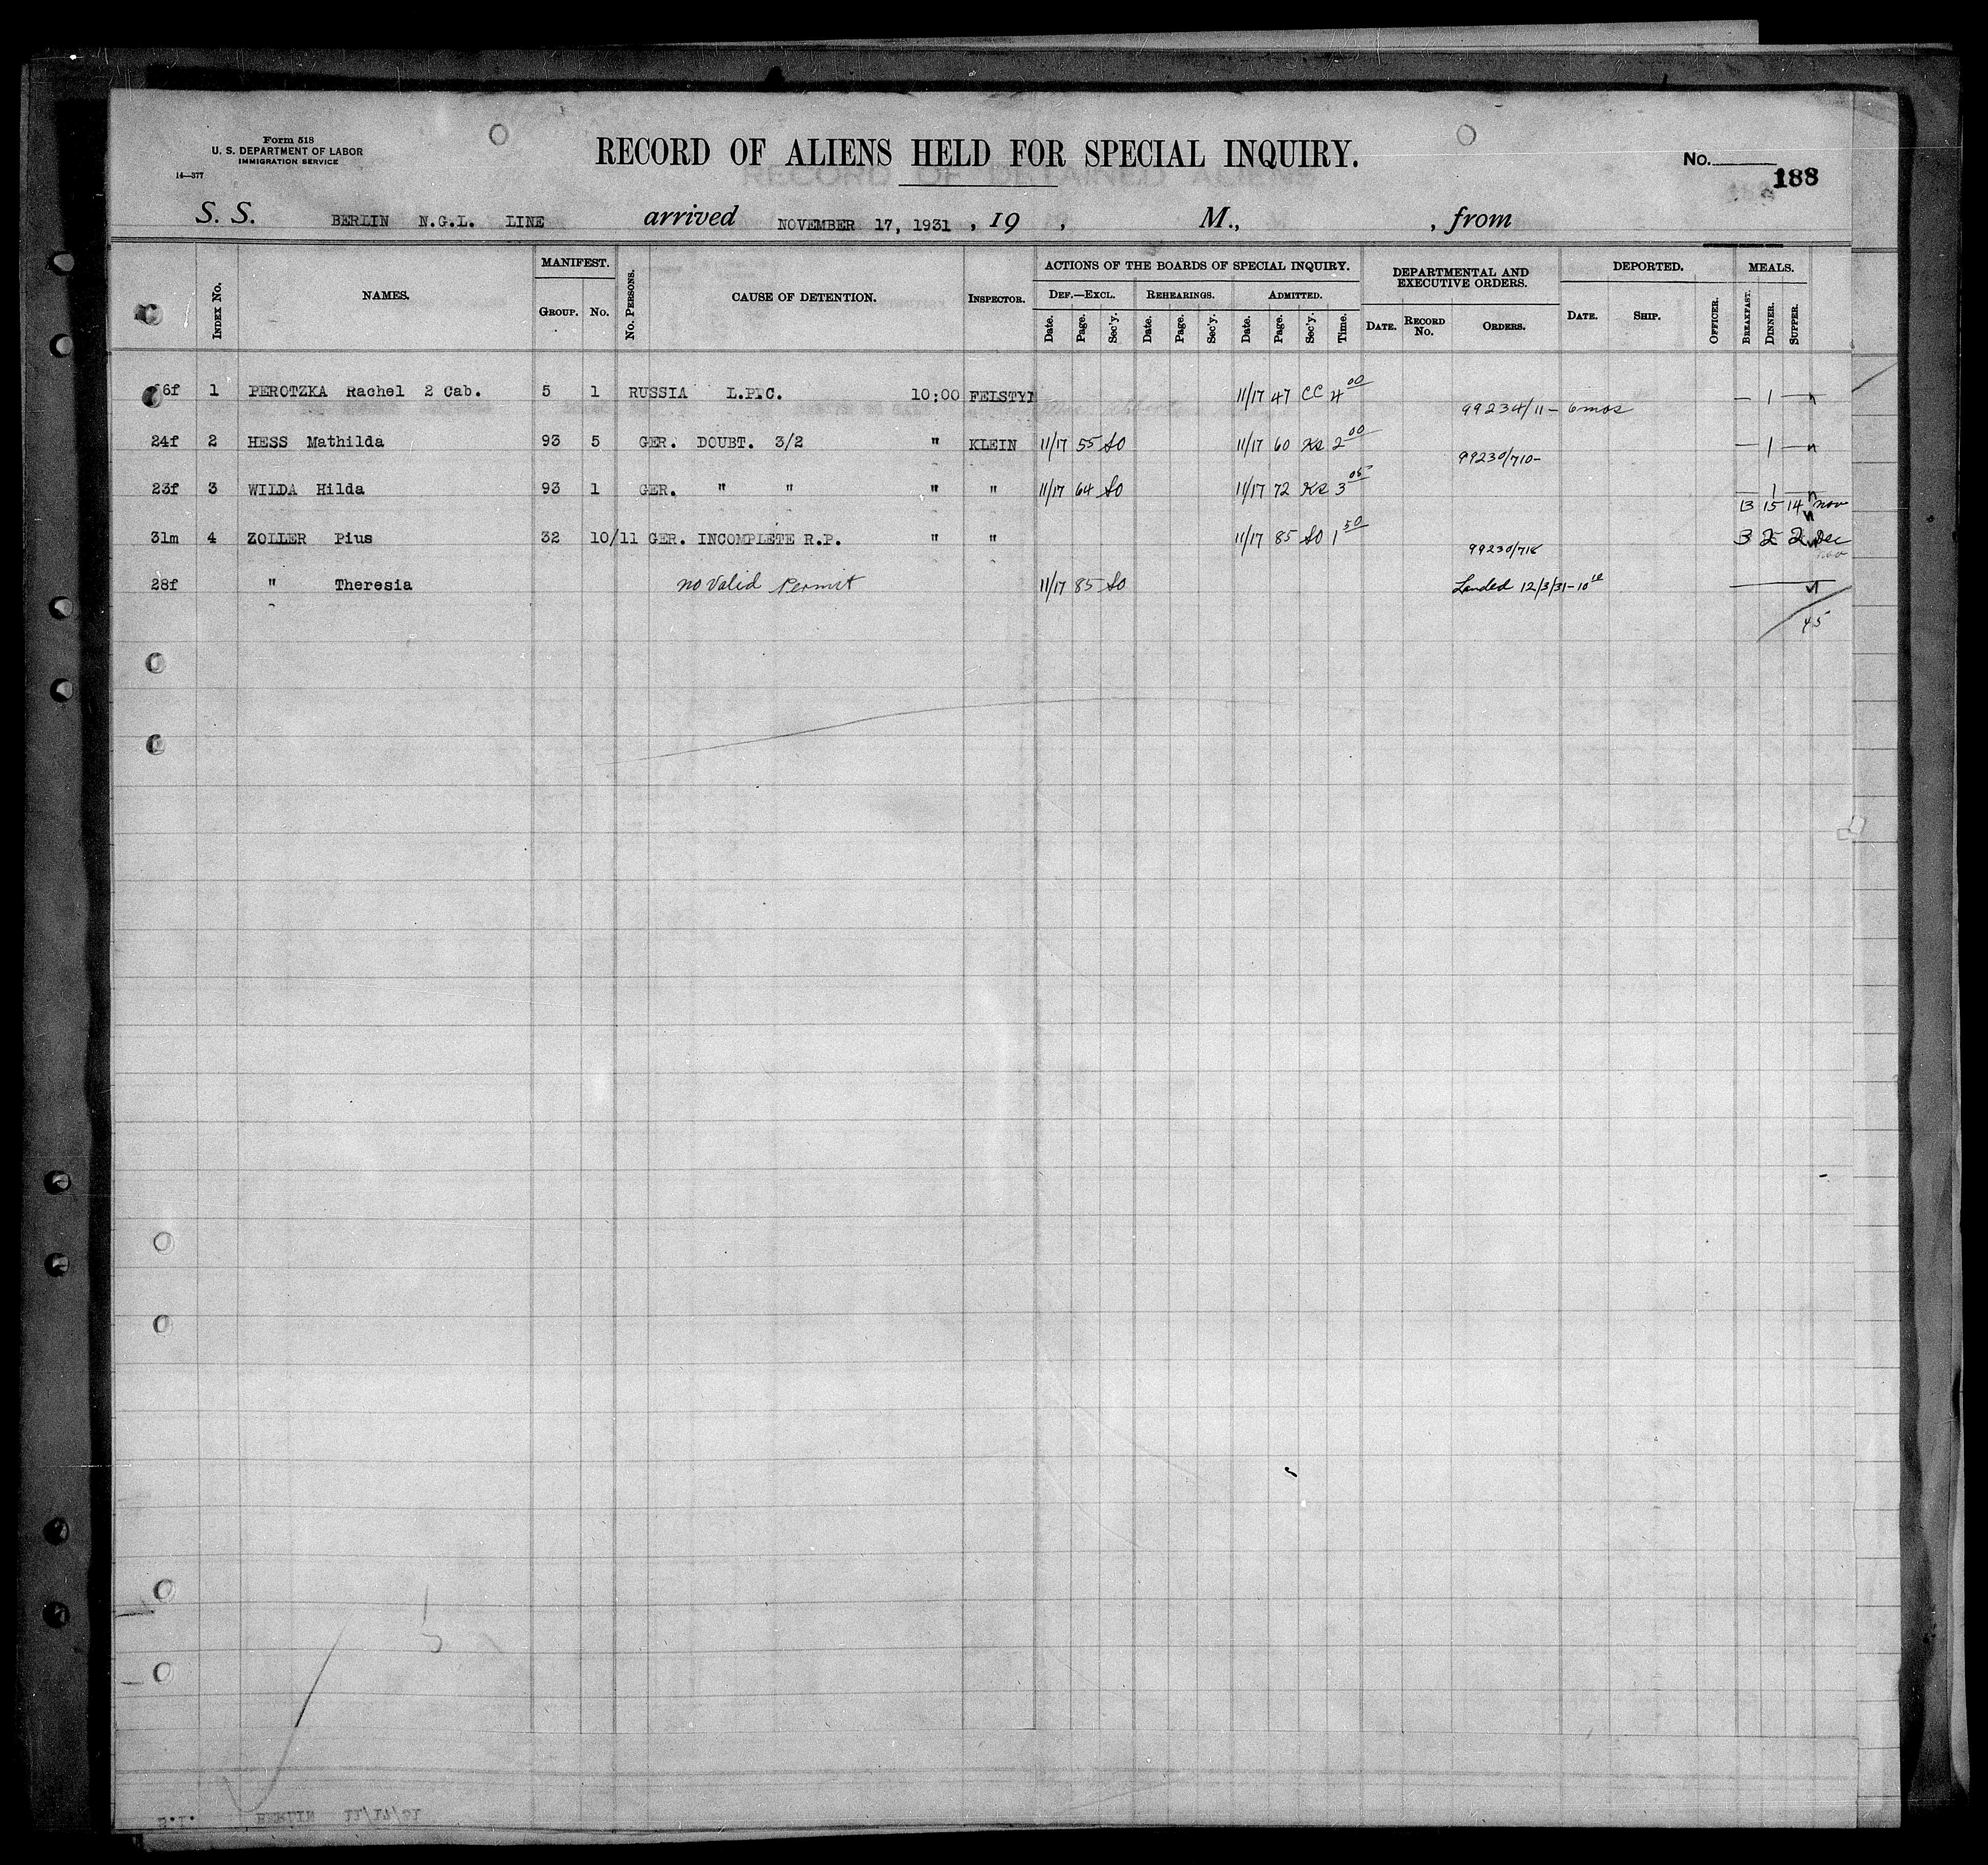 Form 518
U. S. DEPARTMENT OF LABOR
IMMIGRATION SERVICE
14—377
RECORD OF ALIENS HELD FOR SPECIAL INQUIRY.
No.
188
S. S. BERLIN N.G.L. LINE arrived NOVEMBER 17, 1931 , 19 , M., , from
INDEX No. NAMES. MANIFEST. GROUP. No. No. PERSONS. CAUSE OF DETENTION. INSPECTOR. ACTIONS OF THE BOARDS OF SPECIAL INQUIRY. DEF.—EXCL. Date. Page. Sec'y. REHEARINGS. Date. Page. Sec'y. ADMITTED. Date. Page. Sec'y. Time. DEPARTMENTAL AND EXECUTIVE ORDERS. DATE. RECORD No. ORDERS. DEPORTED. DATE. SHIP. OFFICER. MEALS. BREAKFAST. DINNER. SUPPER.
6f 1 PEROTZKA Rachel 2 Cab. 5 1 RUSSIA L.P.C. 10:00 FELSTYN 11/17 47 CC 4 00 99234/11 - 6 mos — 1 —
24f 2 HESS Mathilda 93 5 GER. DOUBT. 3/2 " KLEIN 11/17 55 SO 11/17 60 KS 2 00 99230/710- — 1 —
23f 3 WILDA Hilda 93 1 GER. " " " " 11/17 64 SO 11/17 72 KS 3 05 — 1 —
13 15 14 Nov
31m 4 ZOLLER Pius 32 10/11 GER. INCOMPLETE R.P. " " 11/17 85 SO 1 50 99230/716 3 2 2 Dec
28f " Theresia no valid Permit 11/17 85 SO Landed 12/3/31-10
45
S.I. BERLIN 11/17/31